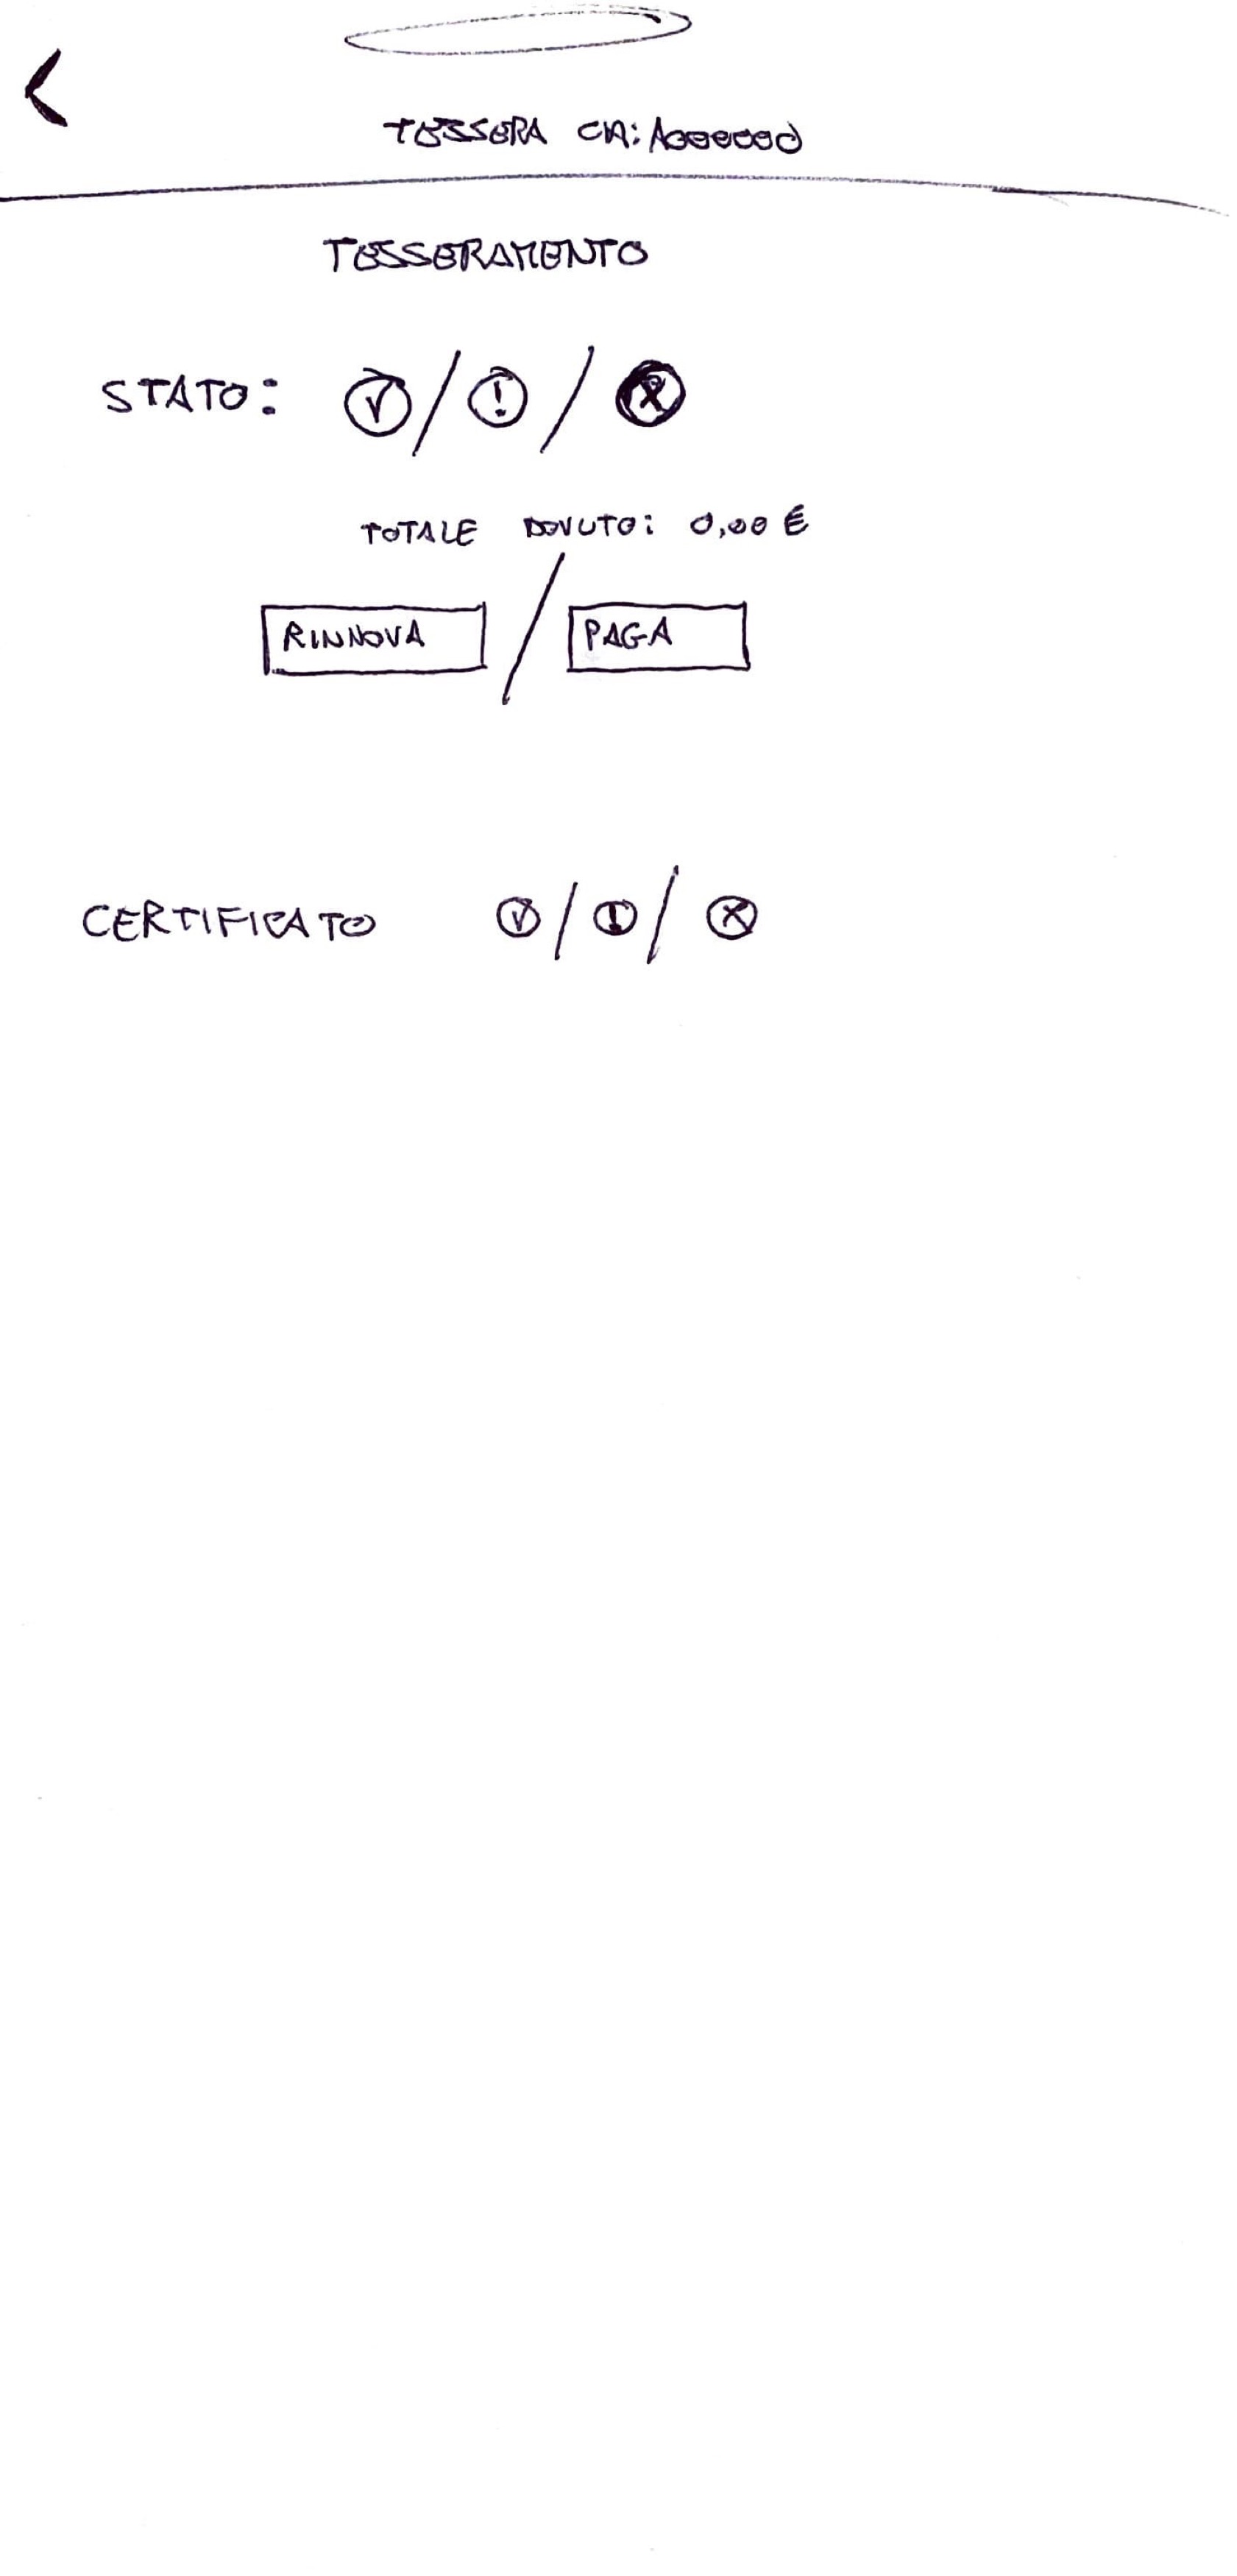 <
TESSERA CIA: A000000
TESSERAMENTO
STATO: ✓ / ! / X
TOTALE DOVUTO: 0,00 €
RINNOVA / PAGA
CERTIFICATO ✓ / ! / X